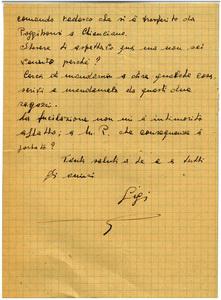 comando tedesco che si è trasferito da
Poggibonsi a Chianciano.
Speravo di aspettarti qua ma non sei
venuto perché?
Cerca di mandarmi a dire qualche cosa,
scrivi e mandamelo da questi due
ragazzi.
La fucilazione non mi è intimorito
affatto; a M. P. che conseguenze à
portato?
Tanti saluti a te e a tutti
gli amici
Gigi